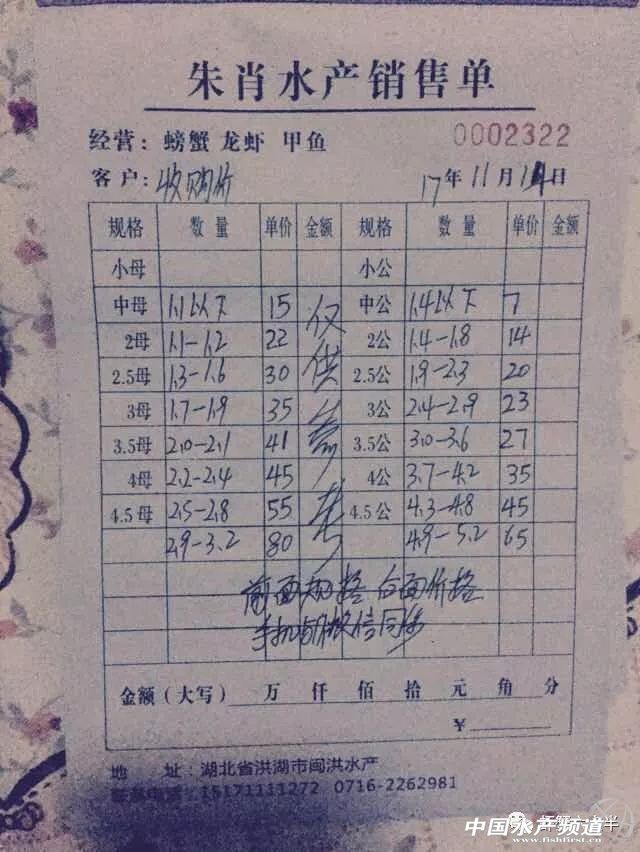 朱肖水产销售单
经营：螃蟹 龙虾 甲鱼 0002322
客户：收购价 17年11月14日
规格 数量 单价 金额 规格 数量 单价 金额
小母 小公
中母 1.1以下 15 中公 1.4以下 7
2母 1.1-1.2 22 2公 1.4-1.8 14
2.5母 1.3-1.6 30 2.5公 1.9-2.3 20
3母 1.7-1.9 35 3公 2.4-2.9 23
3.5母 2.0-2.1 41 3.5公 3.0-3.6 27
4母 2.2-2.4 45 4公 3.7-4.2 35
4.5母 2.5-2.8 55 4.5公 4.3-4.8 45
2.9-3.2 80 4.9-5.2 65
仅供参考
前面规格 后面价格
手机号微信同步
金额（大写） 万 仟 佰 拾 元 角 分
¥
地 址：湖北省洪湖市闽洪水产
联系电话：15171111272 0716-2262981
中国水产频道
www.fishfirst.cn